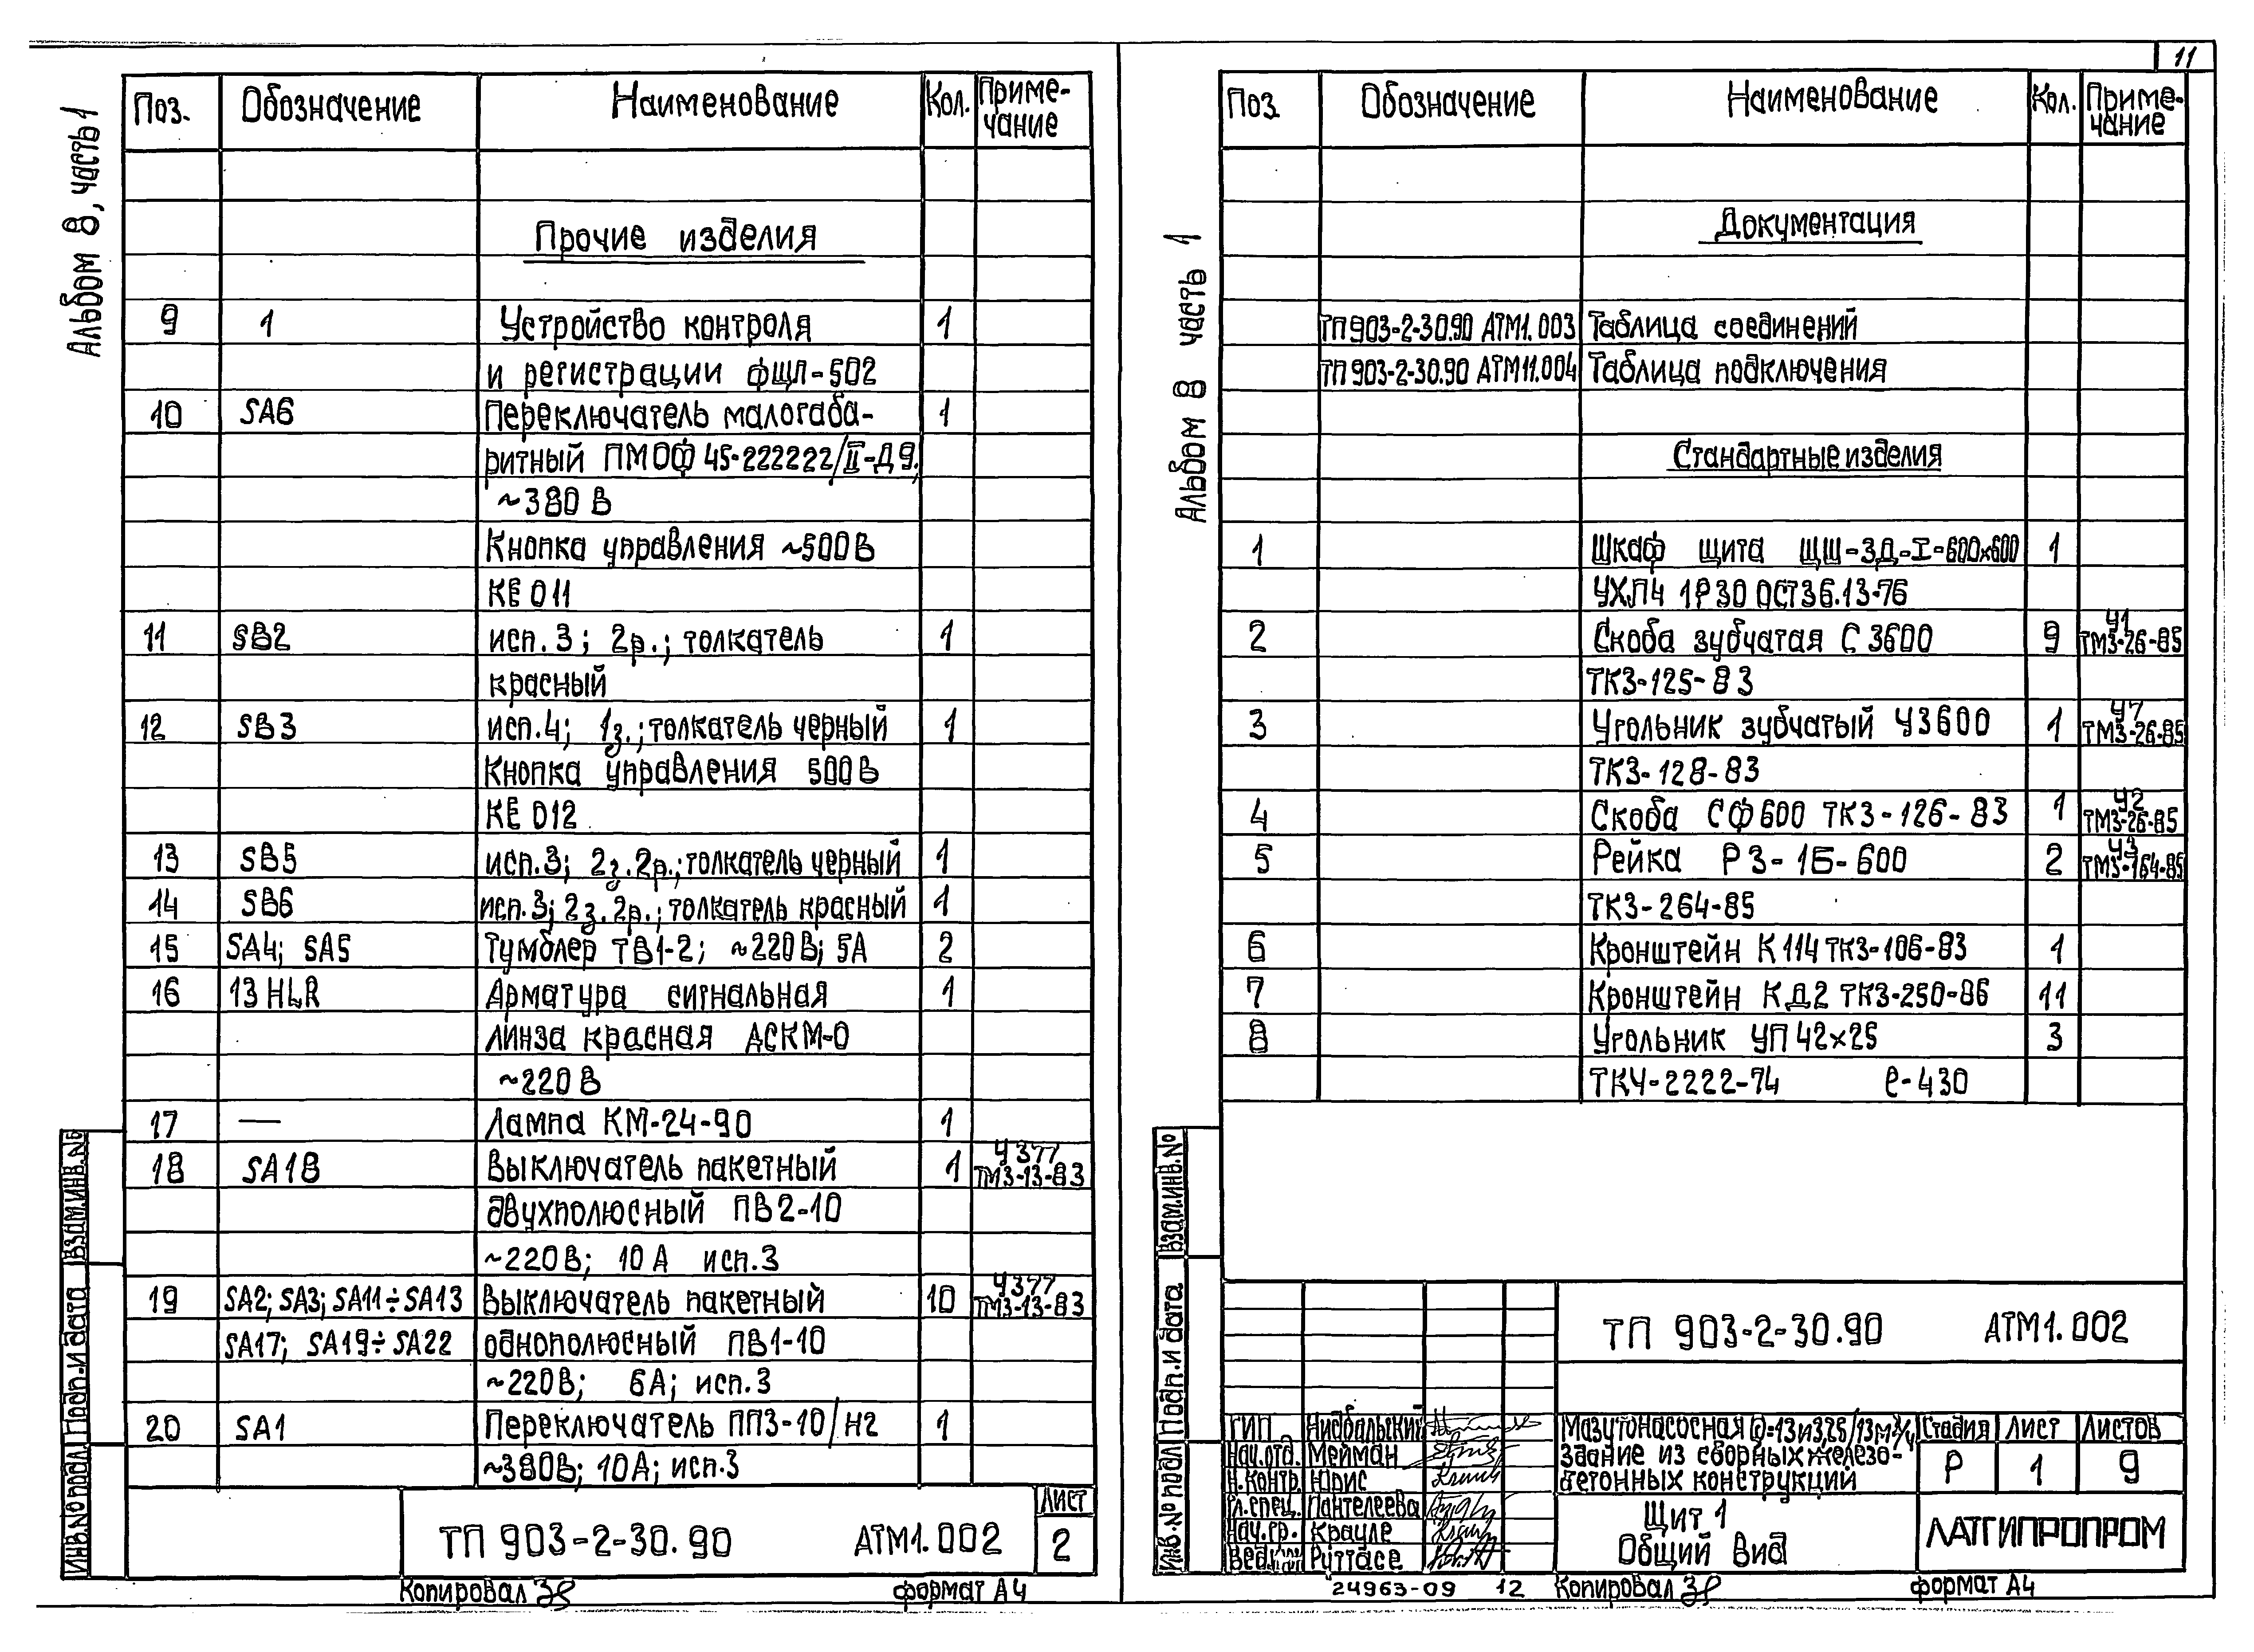 11
Альбом 8, часть 1
Поз. Обозначение Наименование Кол. Приме-
чание
Прочие изделия
9 1 Устройство контроля 1
и регистрации ФЩЛ-502
10 SA6 Переключатель малогаба- 1
ритный ПМОФ 45-222222/II-Д9,
~380 В
Кнопка управления ~500В
КЕ 011
11 SB2 исп. 3; 2р.; толкатель 1
красный
12 SB3 исп.4; 1з.; толкатель черный 1
Кнопка управления 500В
КЕ 012
13 SB5 исп.3; 2з.2р.; толкатель черный 1
14 SB6 исп.3; 2з.2р.; толкатель красный 1
15 SA4; SA5 Тумблер ТВ1-2; ~220В; 5А 2
16 13 HLR Арматура сигнальная 1
линза красная АСКМ-0
~220 В
17 — Лампа КМ-24-90 1
18 SA18 Выключатель пакетный 1 У377
ТМ3-13-83
двухполюсный ПВ2-10
~220В; 10 А исп.3
19 SA2; SA3; SA11÷SA13 Выключатель пакетный 10 У377
ТМ3-13-83
SA17; SA19÷SA22 однополюсный ПВ1-10
~220В; 6А; исп.3
20 SA1 Переключатель ПП3-10/Н2 1
~380В; 10А; исп.3
Взам.инв.№
Подп.и дата
Инв.№ подл.
ТП 903-2-30.90 АТМ1.002
Лист
2
Копировал
формат А4
Альбом 8 часть 1
Поз Обозначение Наименование Кол. Приме-
чание
Документация
ТП 903-2-30.90 АТМ1.003 Таблица соединений
ТП 903-2-30.90 АТМ11.004 Таблица подключения
Стандартные изделия
1 Шкаф щита ЩШ-ЗД-I-600х600 1
УХЛ4 1Р30 ОСТ36.13-76
2 Скоба зубчатая С 3600 9 У1
ТМ3-26-85
ТК3-125-83
3 Угольник зубчатый У3600 1 У7
ТМ3-26-85
ТК3-128-83
4 Скоба СФ600 ТК3-126-83 1 У2
ТМ3-26-85
5 Рейка Р3-1Б-600 2 У3
ТМ3-164-85
ТК3-264-85
6 Кронштейн К114 ТК3-106-83 1
7 Кронштейн КД2 ТК3-250-86 11
8 Угольник УП 42х25 3
ТК4-2222-74 ℓ-430
Взам.инв.№
Подп.и дата
Инв.№ подл
ТП 903-2-30.90 АТМ1.002
ГИП Нидбальский
Нач.отд. Мейман
Н.контр. Юрис
Гл.спец. Пантелеева
Нач.гр. Крауле
Вед.инж Руттасе
Мазутонасосная Q=13и3,25/13м³/ч
Здание из сборных железо-
бетонных конструкций
Стадия Лист Листов
Р 1 9
Щит 1
Общий вид
ЛАТГИПРОПРОМ
24963-09 12
Копировал
формат А4